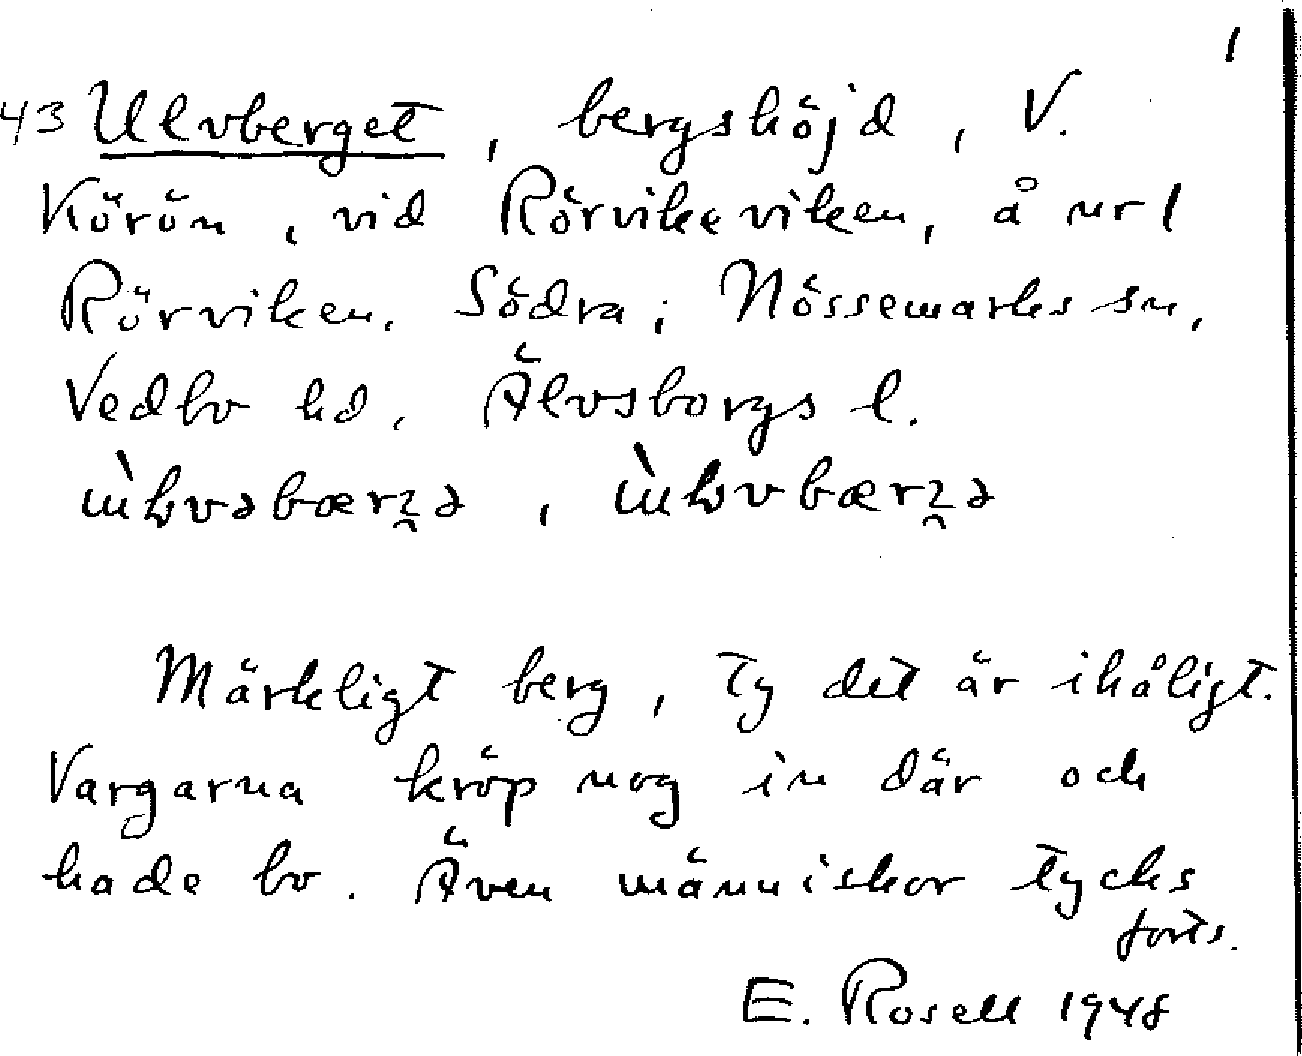 1
43 Ulvberget, bergshöjd, V.
Körön, vid Rörvikeviken, å nr 1
Rörviken, Södra; Nössemarks sn,
Vedbo hd, Älvsborgs l.
Märkligt berg, ty det är ihåligt.
Vargarna kröp nog in där och
hade bo. Även människor tycks
forts.
E. Rosell 1948